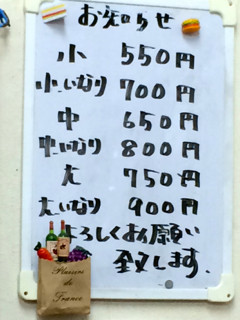 お知らせ
小 550円
小.いなり 700円
中 650円
中.いなり 800円
大 750円
大.いなり 900円
よろしくお願い
致します.
Plaisirs
de
France